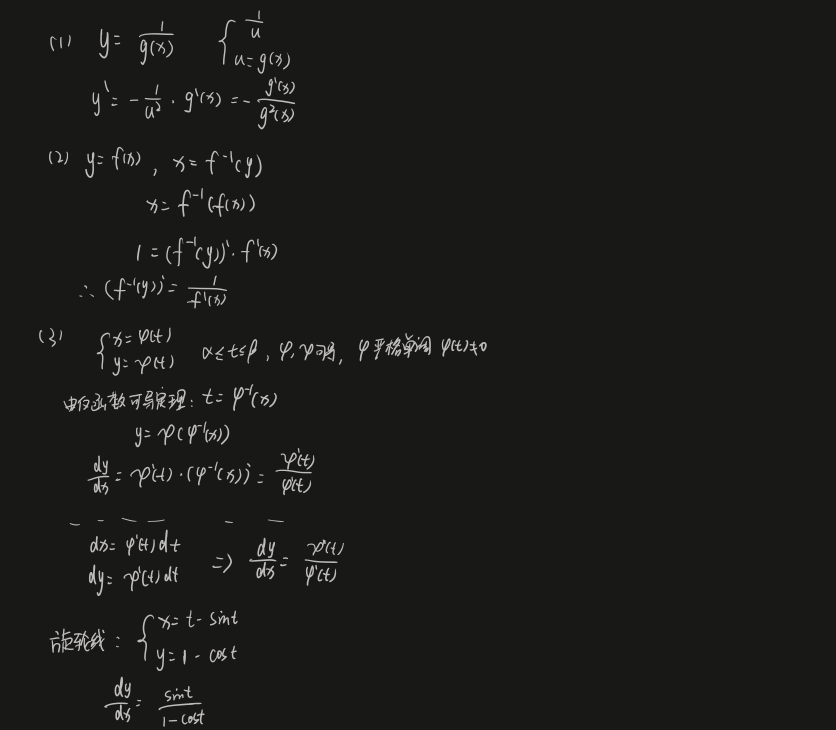 (1) y = 1/g(x) { 1/u
u = g(x)
y' = -1/u² · g'(x) = - g'(x)/g²(x)
(2) y = f(x), x = f⁻¹(y)
x = f⁻¹(f(x))
1 = (f⁻¹(y))' · f'(x)
∴ (f⁻¹(y))' = 1/f'(x)
(3) { x = φ(t)
y = ψ(t) α ≤ t ≤ β, φ, ψ可导, φ严格单调 φ'(t)≠0
由反函数可导定理: t = φ⁻¹(x)
y = ψ(φ⁻¹(x))
dy/dx = ψ'(t) · (φ⁻¹(x))' = ψ'(t)/φ'(t)
dx = φ'(t)dt
dy = ψ'(t)dt ⇒ dy/dx = ψ'(t)/φ'(t)
旋轮线: { x = t - sint
y = 1 - cost
dy/dx = sint/1-cost